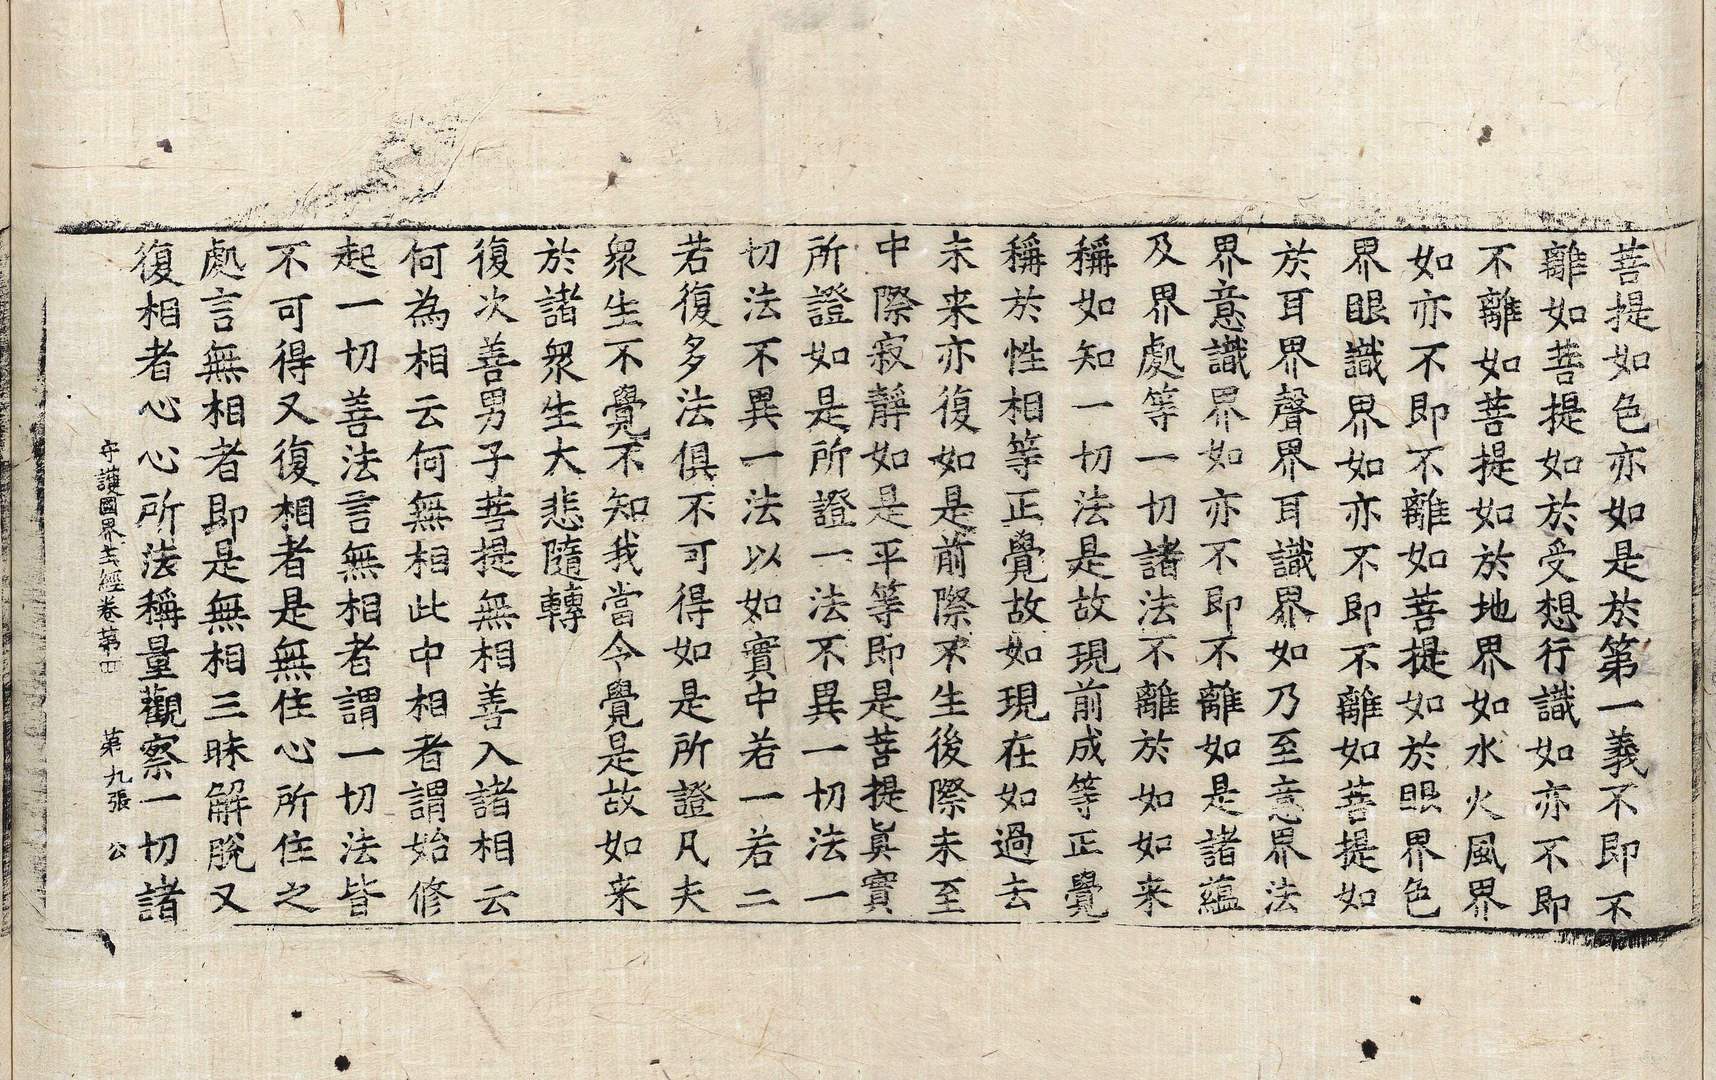 菩提如色亦如是於第一義不即不
離如菩提如於受想行識如亦不即
不離如菩提如於地界如水火風界
如亦不即不離如菩提如於眼界色
界眼識界如亦不即不離如菩提如
於耳界聲界耳識界如乃至意界法
界意識界如亦不即不離如是諸蘊
及界處等一切諸法不離於如如来
稱如知一切法是故現前成等正覺
稱於性相等正覺故如現在如過去
未来亦復如是前際不生後際未至
中際寂靜如是平等即是菩提真實
所證如是所證一法不異一切法一
切法不異一法以如實中若一若二
若復多法俱不可得如是所證凡夫
衆生不覺不知我當令覺是故如来
於諸衆生大悲隨轉
復次善男子菩提無相善入諸相云
何為相云何無相此中相者謂始修
起一切善法言無相者謂一切法皆
不可得又復相者是無住心所住之
處言無相者即是無相三昧解脫又
復相者心心所法稱量觀察一切諸
守護國界主經卷第四 第九張 公